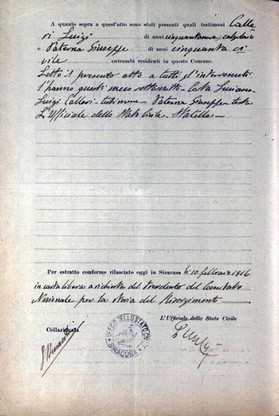 A quanto sopra e quest'atto sono stati presenti quali testimoni Calle
ri Luigi di anni cinquantuno,
e Paterna Giuseppe di anni cinquanta ci
vile entrambi residenti in questo Comune.
Letto il presente atto a tutti gl'intervenuti
l'hanno questi meco sottoscritto Luciano
Luigi Calleri testimone - Paterna Giuseppe teste
L'Ufficiale dello Stato Civile
Per estratto conforme rilasciato oggi in Siracusa li 10 febbraio 1916
in carta libera a richiesta del Presidente del Comitato
Nazionale per la storia del Risorgimento
L'Ufficiale dello Stato Civile
Collazionata
SIRACUSA